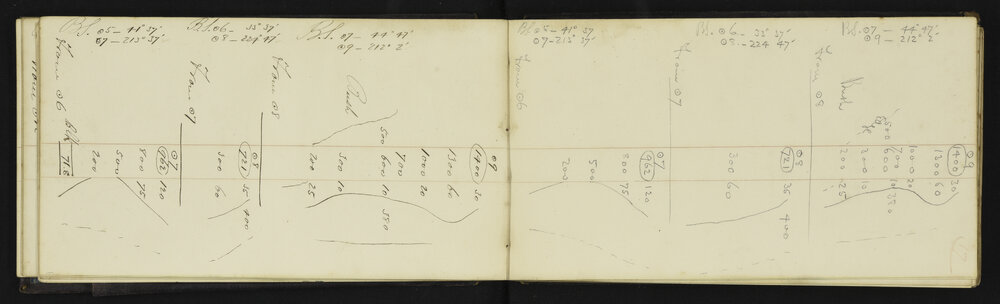 B.S. 05 - 41° 37'
07 - 213° 37'
B.S. 06 - 33° 37'
08 - 224° 47'
B.S. 07 - 44° 47'
09 - 212° 2'
From 06
200
500
800 75
962 120
07
From 07
300 60
721 35 400
08
From 08
Bush
200 25
300 10
500 600 10 380
700
1000 20
1300 60
1400 30
09
B.S. 05 - 41° 37'
07 - 213° 37'
B.S. 06 - 33° 37'
08 - 224° 47'
B.S. 07 - 44° 47'
09 - 212° 2'
From 06
200
500
800 75
962 120
07
From 07
300 60
721 35 400
08
From 08
Bush
200 25
300 10
500 600 10 380
700
1000 20
1300 60
1400 30
09